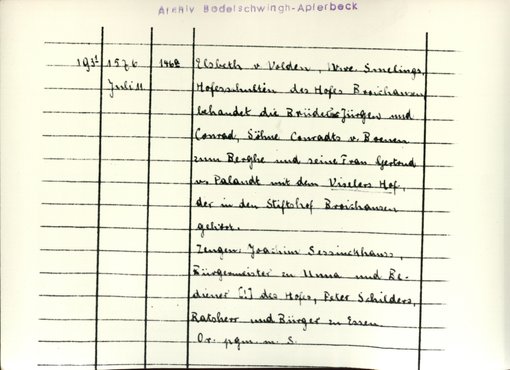 Archiv Bodelschwingh-Aplerbeck
193¹ 1576 1468 Elsbeth v. Volden, Wwe. Smelings,
Juli 11 Hofesschulten des Hofes Broichausen
behandet die Brüder Jürgen und
Conrad, Söhne Conradts v. Boenen
zum Berghe und seine Frau Gertrud
v. Palandt mit dem Viselers Hof,
der in den Stiftshof Broichausen
gehört.
Zeugen: Joachim Sessinckhauss,
Bürgermeister zu Unna und Be-
diener [!] des Hofes, Peter Schilders,
Ratsherr und Bürger zu Essen
Or. pgm. m. S.